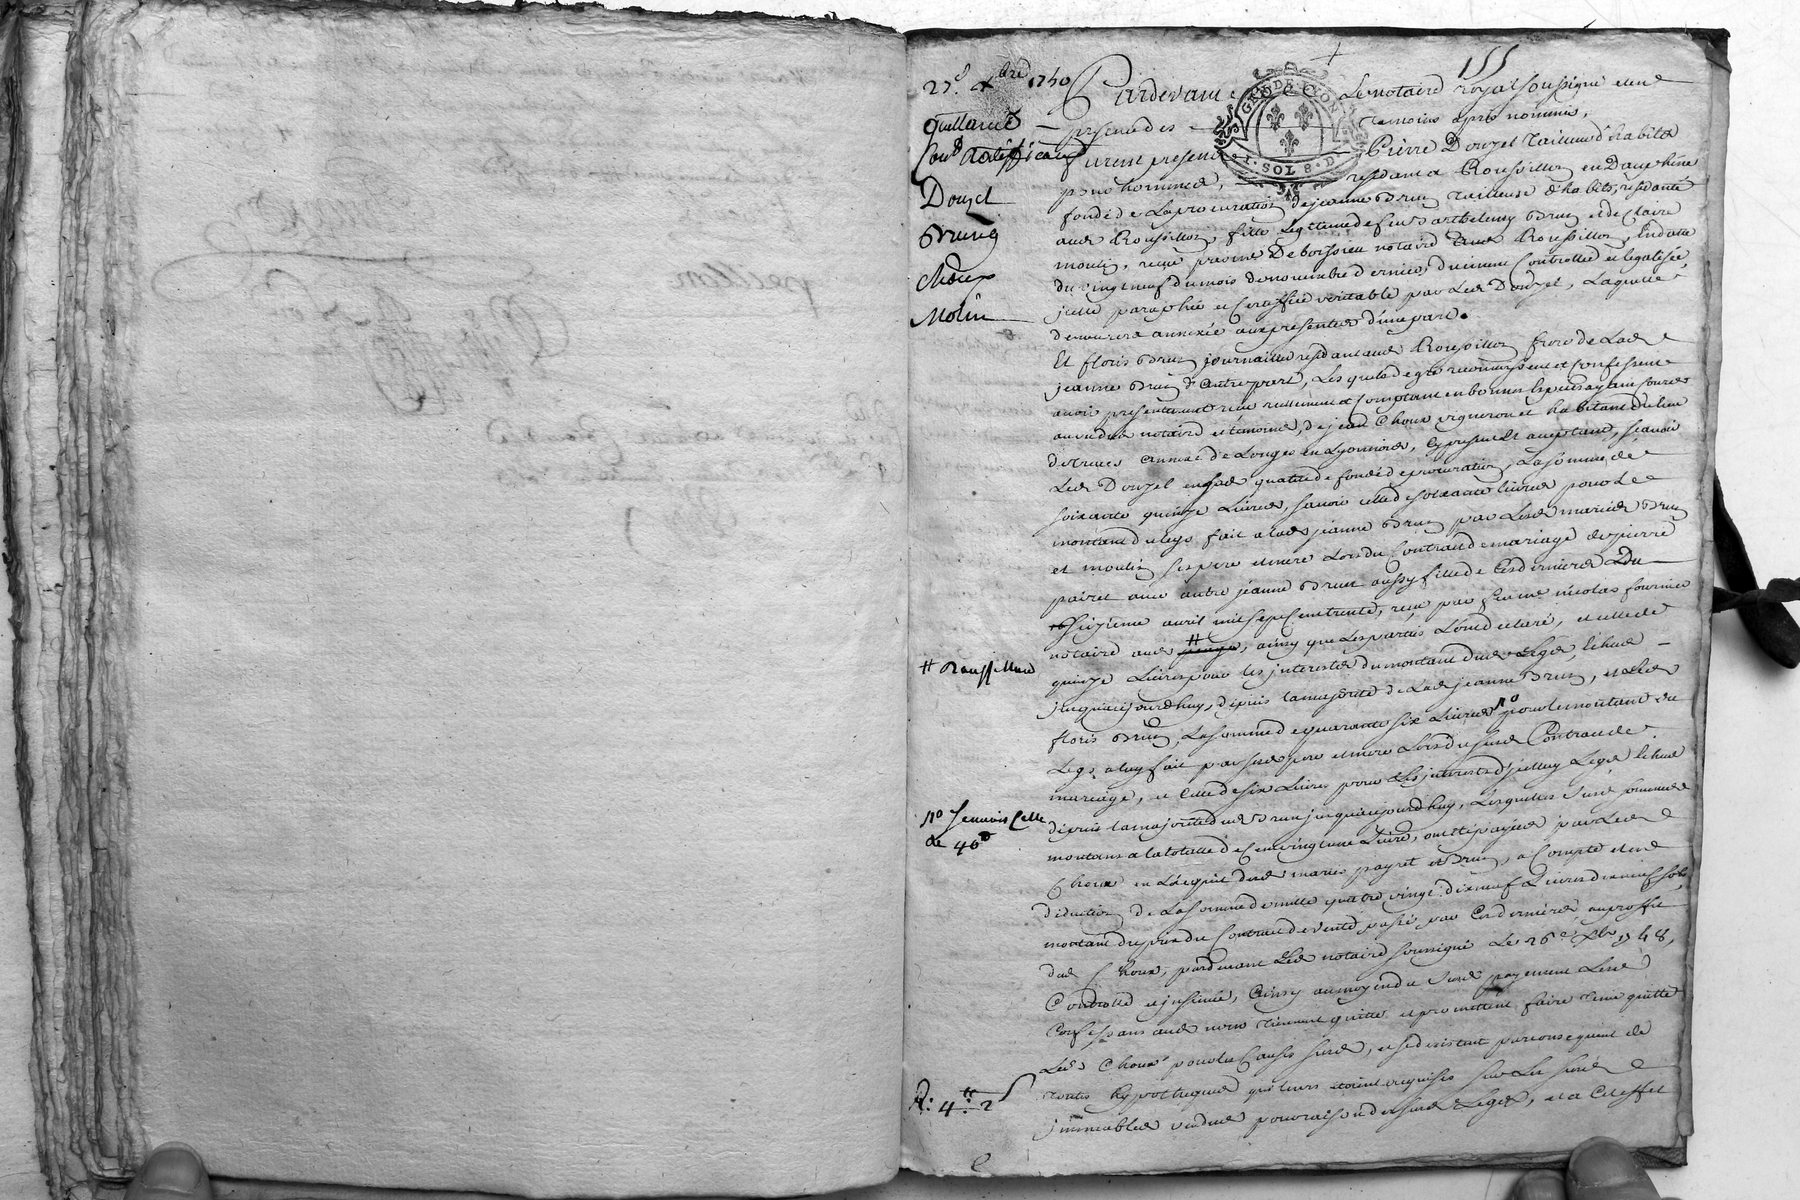 155
27e. Xbre 1750
Quittance
Douzel
Brun
Choux
Molin
Pardevant Le notaire royal soussigné et en
presence des temoins après nommés,
furent presents Pierre Douzel Tailleur d'habits
pour hommes, residant a Roussillon en Dauphiné
fondé de La procuration de jeanne Brun Tailleuse d'habits, residante
aud. Roussillon, fille Legitime de feus Barthelemy Brun et de Claire
moulin, reçue par me. De boissieu notaire aud. Roussillon, En datte
du vingt neuf du mois de novembre dernier, duement Controllée et legalisée,
jcelle paraphée et Certiffiée veritable par Led. Douzel, Laquelle
demeurera annexée aux presentes d'une part.
Et floris Brun journailler residant aud. Roussillon frere de Lad.
jeanne Brun d'autre part, Lesquels de gré reconnoissent et Confessent
avoir presentement reçu reellement et Comptant en bonnes Especes ayant Cours
au vu dud. notaire et temoins, de jean Choux vigneron et habitant du lieu
de treves annexe de Longes en Lyonnois, Cy present et acceptant, sçavoir
Led. Douzel en sad. qualité de fondé de procuration, La somme de
soixante quinze Livres, savoir celle de soixante livres pour Le
montant du legs fait a lad. jeanne Brun par Lesd. mariés Brun
et moulin ses pere et mere Lors du Contrat de mariage de pierre
pairet avec autre jeanne Brun aussy fille de Ces derniers du
seizieme avril mil sept Cent trente, reçu par feu me. nicolas fournier
notaire aud. #, ainsy que Les parties L'ont declaré, et celle de
# Roussillon
quinze Livres pour les jnterests du montant dud. Legs, Echus
jusqu'aujourdhuy, depuis la majorité de Lad. jeanne Brun, et Led.
floris Brun, La somme de quarante six Livres no pour le montant du
Legs a luy fait par sesd. pere et mere Lors du susd. Contrat de
mariage, et Celle de six Livres pour Les jnterests d'jcelluy Legs Echus
no sçavoir Celle
de 40 #
depuis la majorité dud. Brun jusqu'aujourdhuy, Lesquelles susd. sommes
montant a la totalle de Cent vingt une Livre, ont été payées par Led.
Choux en L'acquit desd. mariés payret et Brun, a Compte et en
deduction de La somme de mille quatre vingt dix neuf Livres dix neuf sols,
montant du prix du Contrat de vente passé par Ces derniers au proffit
dud. Choux, pardevant Led. notaire soussigné Le 26e. Xbre 1748,
Controllé et jnsinué, Ainsy au moyen du susd. payement Les
Confessans aud. nom tiennent quitte et promettent faire tenir quitte
Led. Choux pour les Causes susd., et se desistent par consequent de
toutes hypotheques qui leurs etoient acquises sur Les susd.
R: 4 #: 2 s
jmmeubles vendus pour raison desd. Legs, et a Cet effet